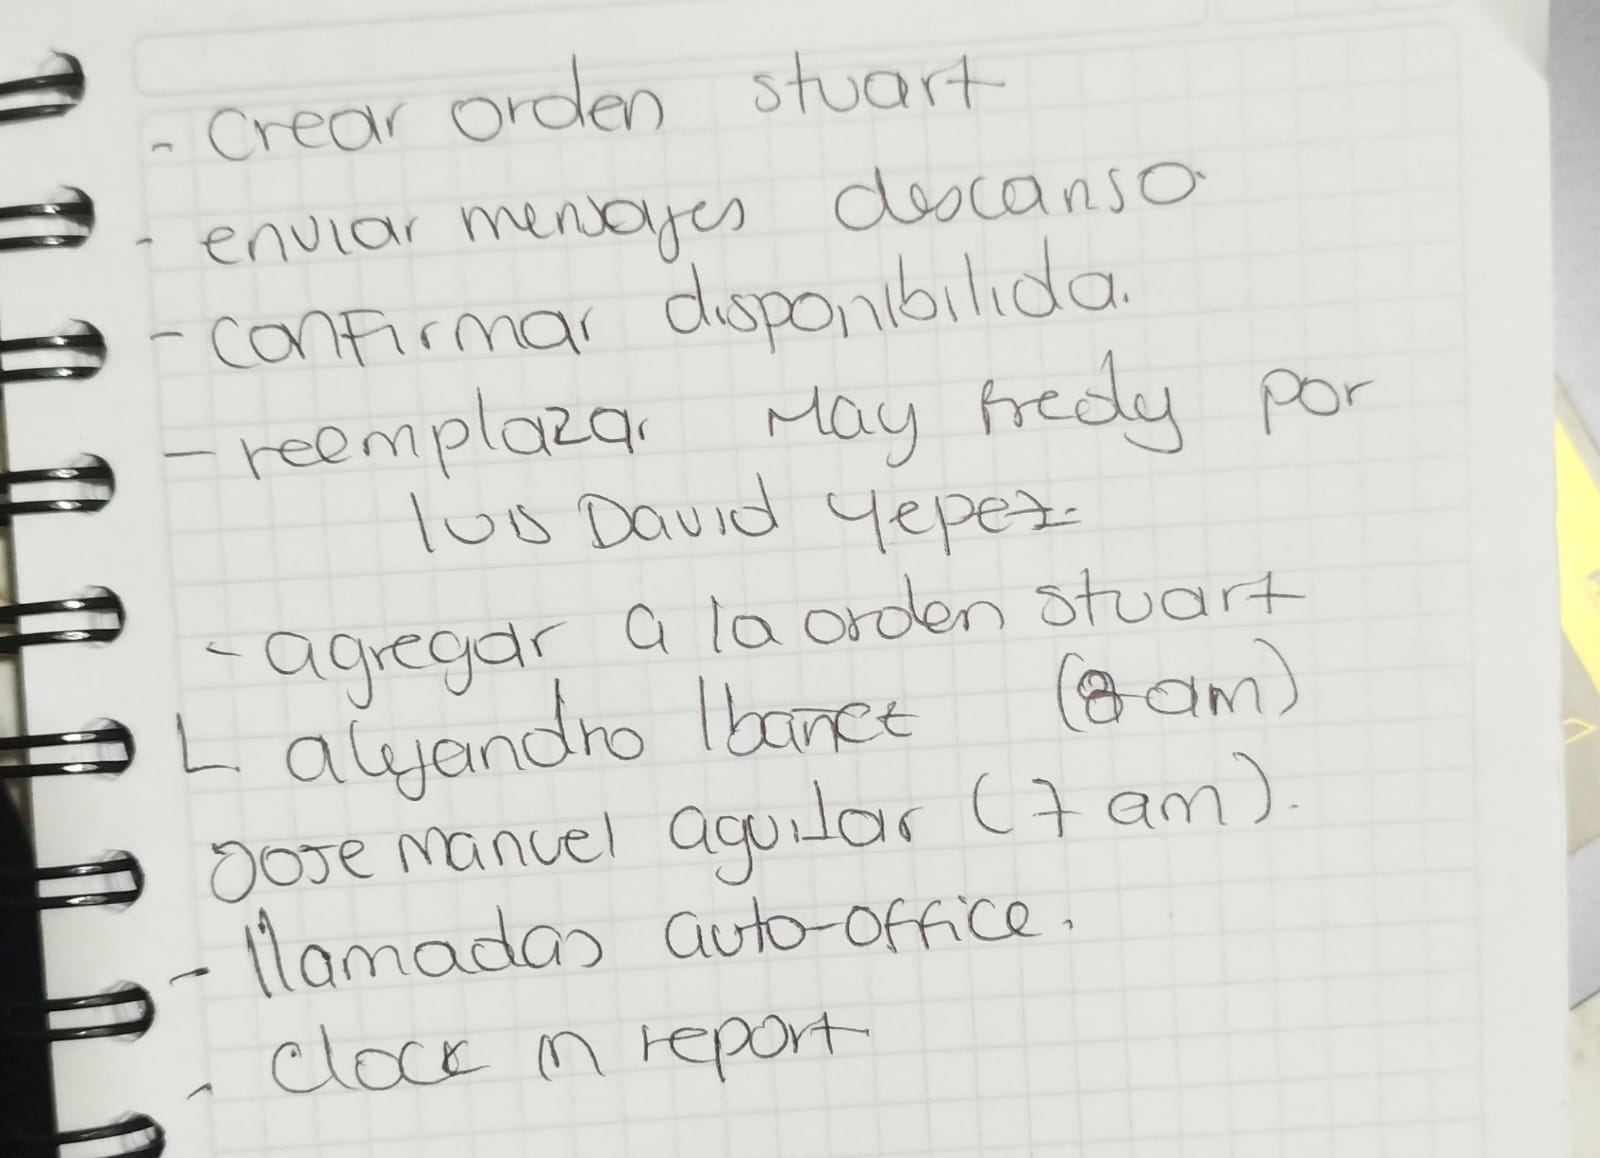 - Crear orden stuart
- enviar mensajes descanso.
- confirmar disponibilida.
- reemplazar May fredy por
luis David Yepez.
- agregar a la orden stuart
L alejandro Ibañez (8 am)
Jose Manuel aguilar (7 am).
- llamadas auto-office.
- clock in report